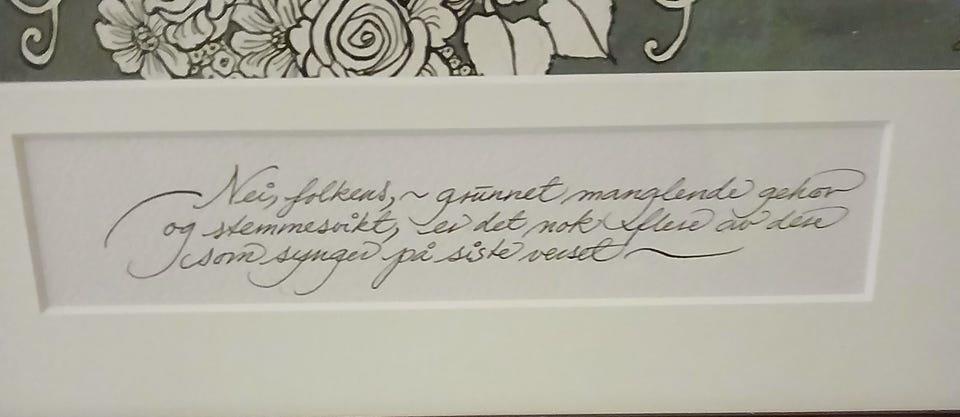 Nei, folkens, ~ grunnet manglende gehør
og stemmesvikt, er det nok flere av dere
som synger på siste verset